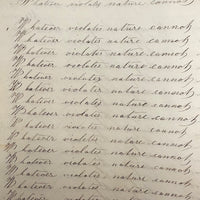 Whatever violates nature cannot
Whatever violates nature cannot
Whatever violates nature cannot
Whatever violates nature cannot
Whatever violates nature cannot
Whatever violates nature cannot
Whatever violates nature cannot
Whatever violates nature cannot
Whatever violates nature cannot
Whatever violates nature cannot
Whatever violates nature cannot
Whatever violates nature cannot
Whatever violates nature cannot
Whatever violates nature cannot